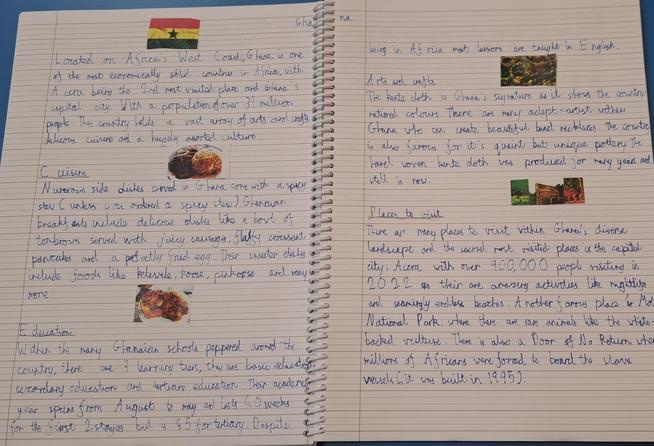 Gha na
Located on Africa's West Coast, Ghana is one
of the most economically solid countries in Africa, with
Accra being the 2nd most visited place and Ghana's
capital city. With a population of over 31 million
people. This country holds a vast array of arts and crafts
delicious cuisine and a hugely assorted culture.
Cuisine
Numerous side dishes served in Ghana come with a spicy
stew (unless you ordered a spicy stew). Ghanaian
breakfasts include delicious dishes like a bowl of
served with juicy sausage, fluffy croissant
pancakes and a perfectly fried egg. Their sweeter dishes
include foods like kelewele, and many
more
Education
Within the many Ghanaian schools peppered around the
country, there are 3 learning tiers, they are basic education
secondary education and tertiary education. Their academic
year spans from August to may and lasts 40 weeks
for the first 2 stages but is 45 for tertiary. Despite
being in Africa most lessons are taught in English.
Arts and crafts
The kente cloth is Ghana's signature as it shows the country
national colours. There are many adept artist within
Ghana who can create beautiful bead necklaces. The country
is also famous for it's quaint but unique pottery. The
hand woven kente cloth was produced for many years and
still is now.
Places to visit
There are many places to visit within Ghana's diverse
landscape and the second most visited places is the capital
city, Accra with over 900,000 people visiting in
2022 as their are amazing activities like nightlife
and seemingly endless beaches. Another famous place is Mole
National Park. where there are rare animals like the white-
backed vulture. There is also a Door of No Return where
millions of Africans were forced to board the slave
vessels (it was built in 1995).